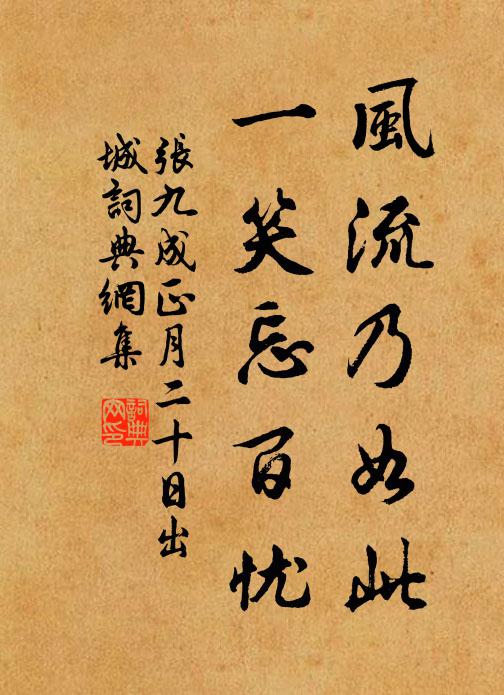 風流乃如此
一笑忘百忧
張九成正月二十日出
城詞典網集
詞典
網印